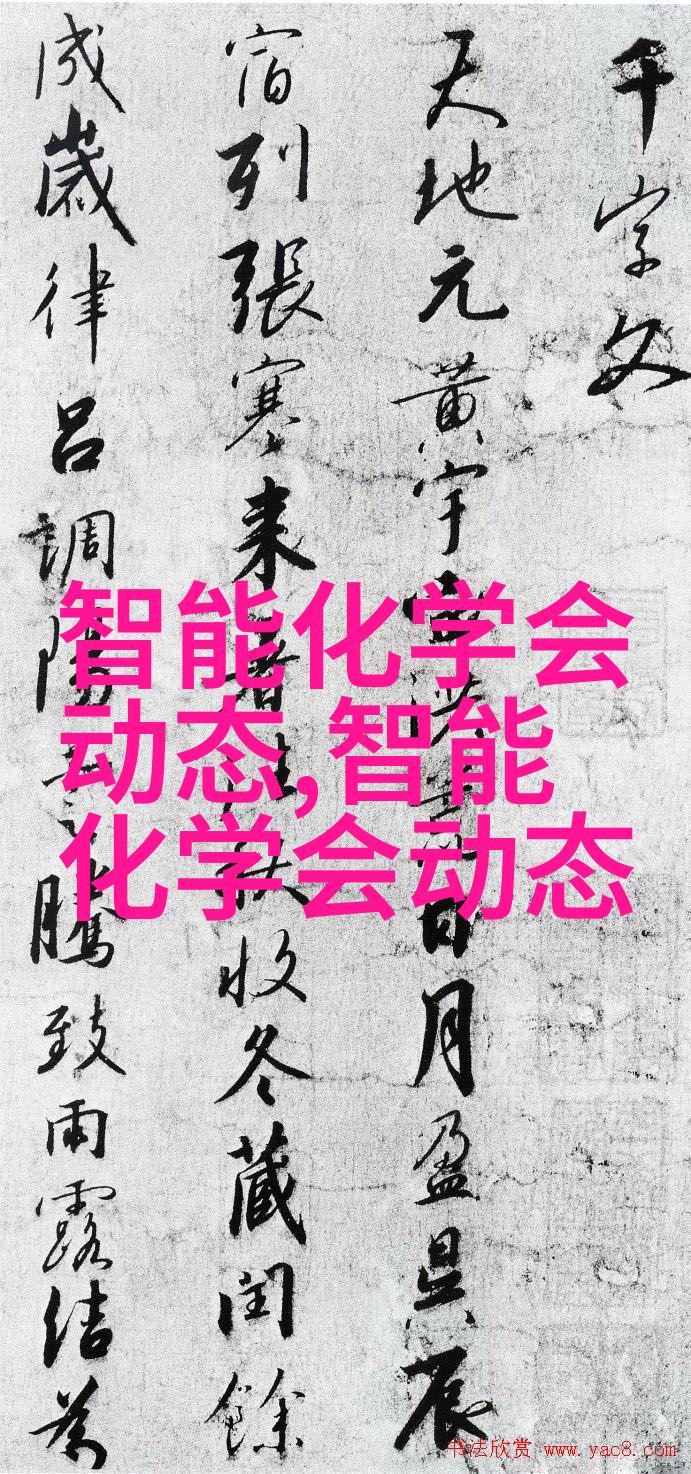 千字文
天地元黄宇宙洪荒日月盈昃辰
宿列張寒来暑往秋收冬藏閏餘
成歲律吕調陽雲騰致雨露结為
智能化学会
动态,智能
化学会动态
书法欣赏 www.yac8.com